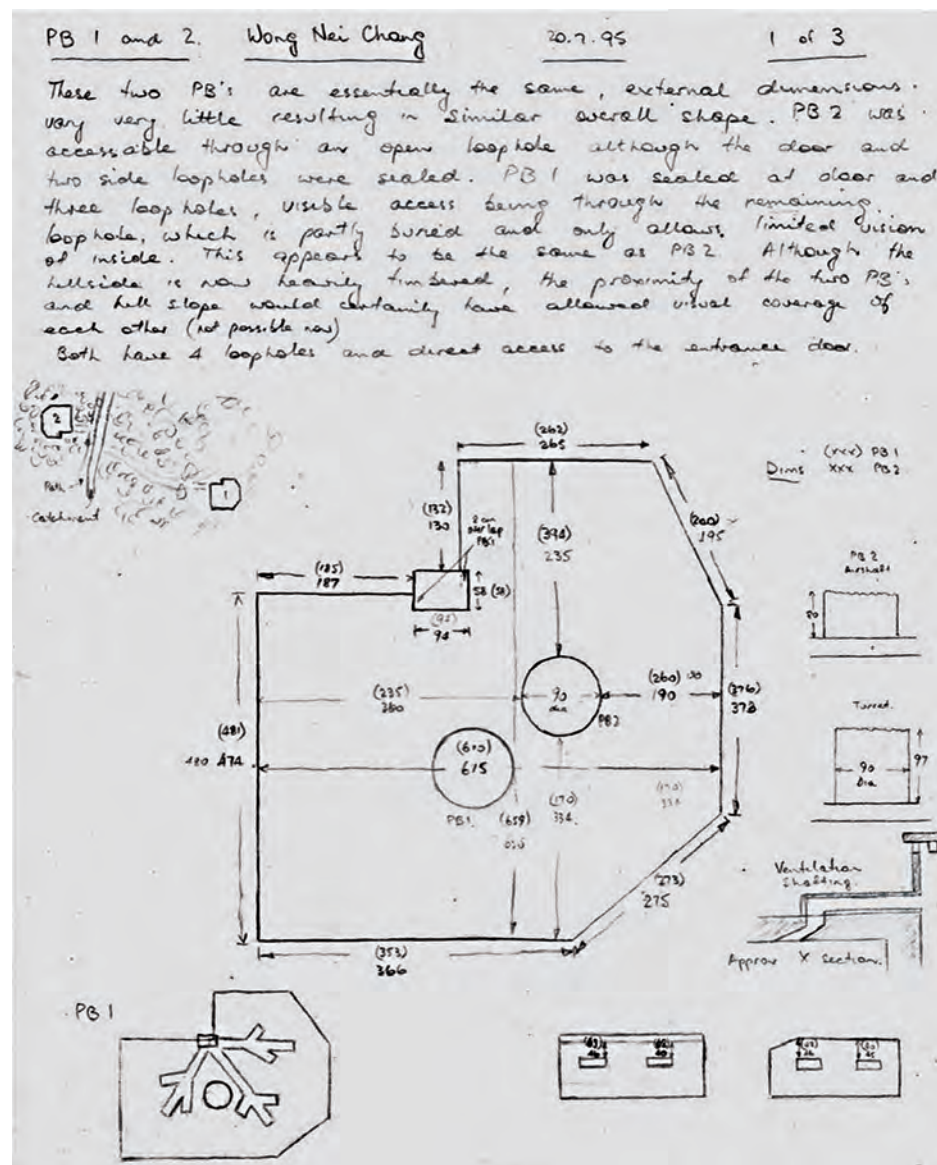 PB 1 and 2. Wong Nei Chong 20.7.95 1 of 3
These two PB's are essentially the same, external dimensions
vary very little resulting in similar overall shape. PB 2 was
accessable through an open loophole although the door and
two side loopholes were sealed. PB 1 was sealed at door and
three loopholes, visible access being through the remaining
loophole, which is partly buried and only allows limited vision
of inside. This appears to be the same as PB 2. Although the
hillside is now heavily timbered, the proximity of the two PB's
and hill slope would certainly have allowed visual coverage of
each other (not possible now)
Both have 4 loopholes and direct access to the entrance door.
2
1
Path
Catchment
(262)
265
(xxx) PB 1
Dims xxx PB 2.
(132)
130
2 cm
overlap
PB1
(394)
235
(200)
195
(185)
187
58 (58)
94
PB 2
Airshaft
(235)
90
dia
PB2
(260)
190
(376)
373
(481)
480 474
(600)
615
PB1.
(659)
(170)
334
Turret
90
Dia
97
(273)
275
Ventilation
Shafting.
Approx X Section.
(353)
366
PB 1